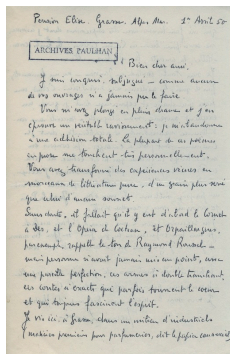 Pension Elise. Grasse. Alpes Mar. 1er Avril 50
ARCHIVES PAULHAN
Bien cher ami.
Je suis conquis, subjugué – comme aucun
de vos ouvrages n'a jamais pu le faire.
Vous m'avez plongé en plein drame et j'en
éprouve un véritable ravissement; je m'abandonne
à une adhésion totale. La plupart de ces poèmes
en prose me touchent très personnellement.
Vous avez transformé des expériences vécues en
morceaux de littérature pure, d'un grain plus serré
que celui d'
Sans doute, il fallait qu'il y eut d'abord le Cornet
à dés, et l'Opéra de Cocteau, et
par exemple, rappelle le ton de Raymond Roussel –
mais personne n'avait jamais mis au point, avec
une pareille perfection, ces armes à double tranchant,
ces contes à exacts que parfois tournent le
et qui toujours fascinent l'esprit.
Je vis ici, à Grasse, dans un milieu d'industriels
(matières premières pour parfumeries, dit le papier